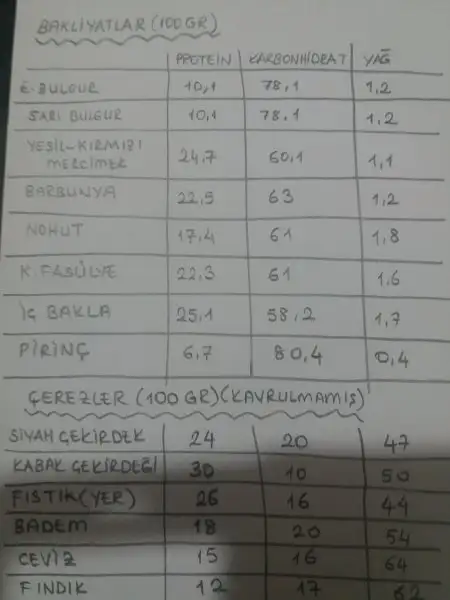 BAKLİYATLAR (100 GR)
PROTEİN KARBONHİDRAT YAĞ
E. BULGUR 10,1 78,1 1,2
SARI BULGUR 10,1 78,1 1,2
YEŞİL-KIRMIZI
MERCİMEK 24,7 60,1 1,1
BARBUNYA 22,5 63 1,2
NOHUT 17,4 61 1,8
K. FASÜLYE 22,3 61 1,6
İÇ BAKLA 25,1 58,2 1,7
PİRİNÇ 6,7 80,4 0,4
ÇEREZLER (100 GR) (KAVRULMAMIŞ)
SİYAH ÇEKİRDEK 24 20 47
KABAK ÇEKİRDEĞİ 30 10 50
FISTIK (YER) 26 16 44
BADEM 18 20 54
CEVİZ 15 16 64
FINDIK 12 17 62